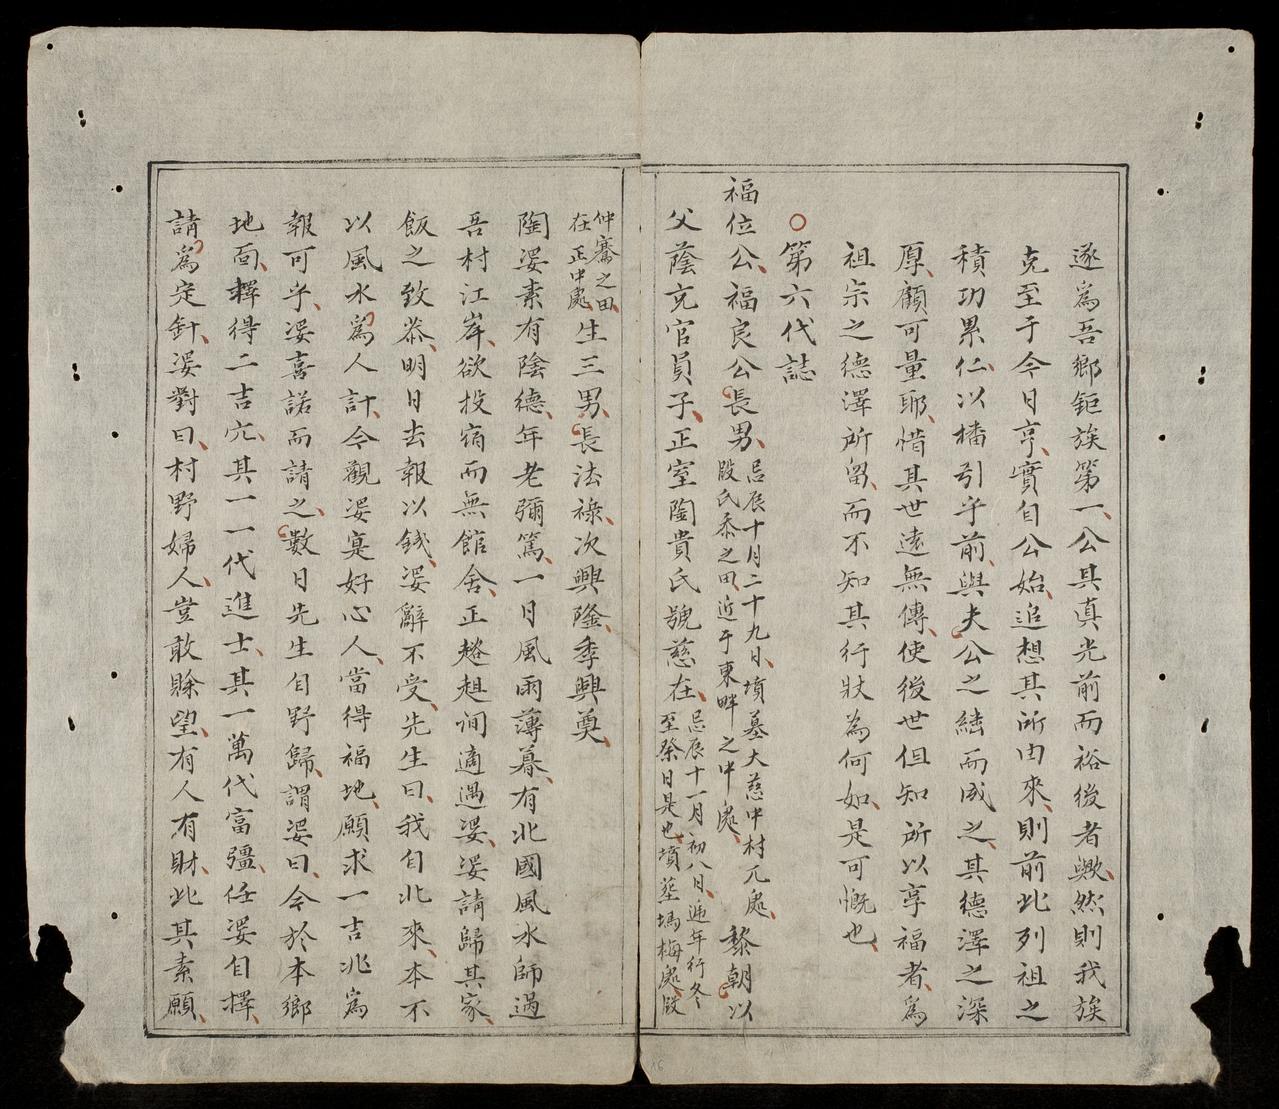 遂為吾鄉鉅族第一公其真光前而裕後者歟然則我族
克至于今日亨實自公始追想其所由來則前此列祖之
積功累仁以橎引乎前與夫公之繼而成之其德澤之深
厚顧可量耶惜其世遠無傳使後世但知所以享福者為
祖宗之德澤所留而不知其行狀為何如是可慨也
○第六代誌
福位公福良公長男忌辰十月二十九日墳墓大慈中村兀處
段氏黍之田近于東畔之中處黎朝以
父蔭充官員子正室陶貴氏號慈在忌辰十一月初八日遞年行冬
至祭日是也墳葬塢梅處段
仲騫之田
在正中處生三男長法祿次興隆季興奠
陶婆素有陰德年老彌篤一日風雨薄暮有北國風水師過
吾村江岸欲投宿而無館舍正趦趄間適遇婆婆請歸其家
飯之致恭明日去報以錢婆辭不受先生曰我自北來本不
以風水為人計今觀婆寔好心人當得福地願求一吉兆為
報可乎婆喜諾而請之數日先生自野歸謂婆曰今於本鄉
地面擇得二吉穴其一一代進士其一萬代富彊任婆自擇
請為定針婆對曰村野婦人豈敢賒望有人有財此其素願